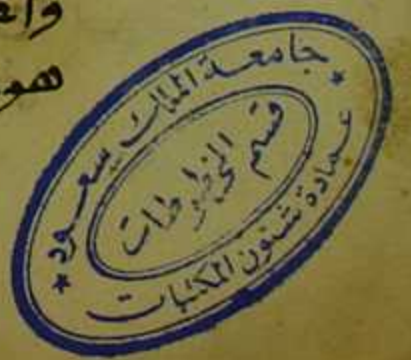 هو
جامعة الملك سعود
قسم المخطوطات
عمادة شئون المكتبات